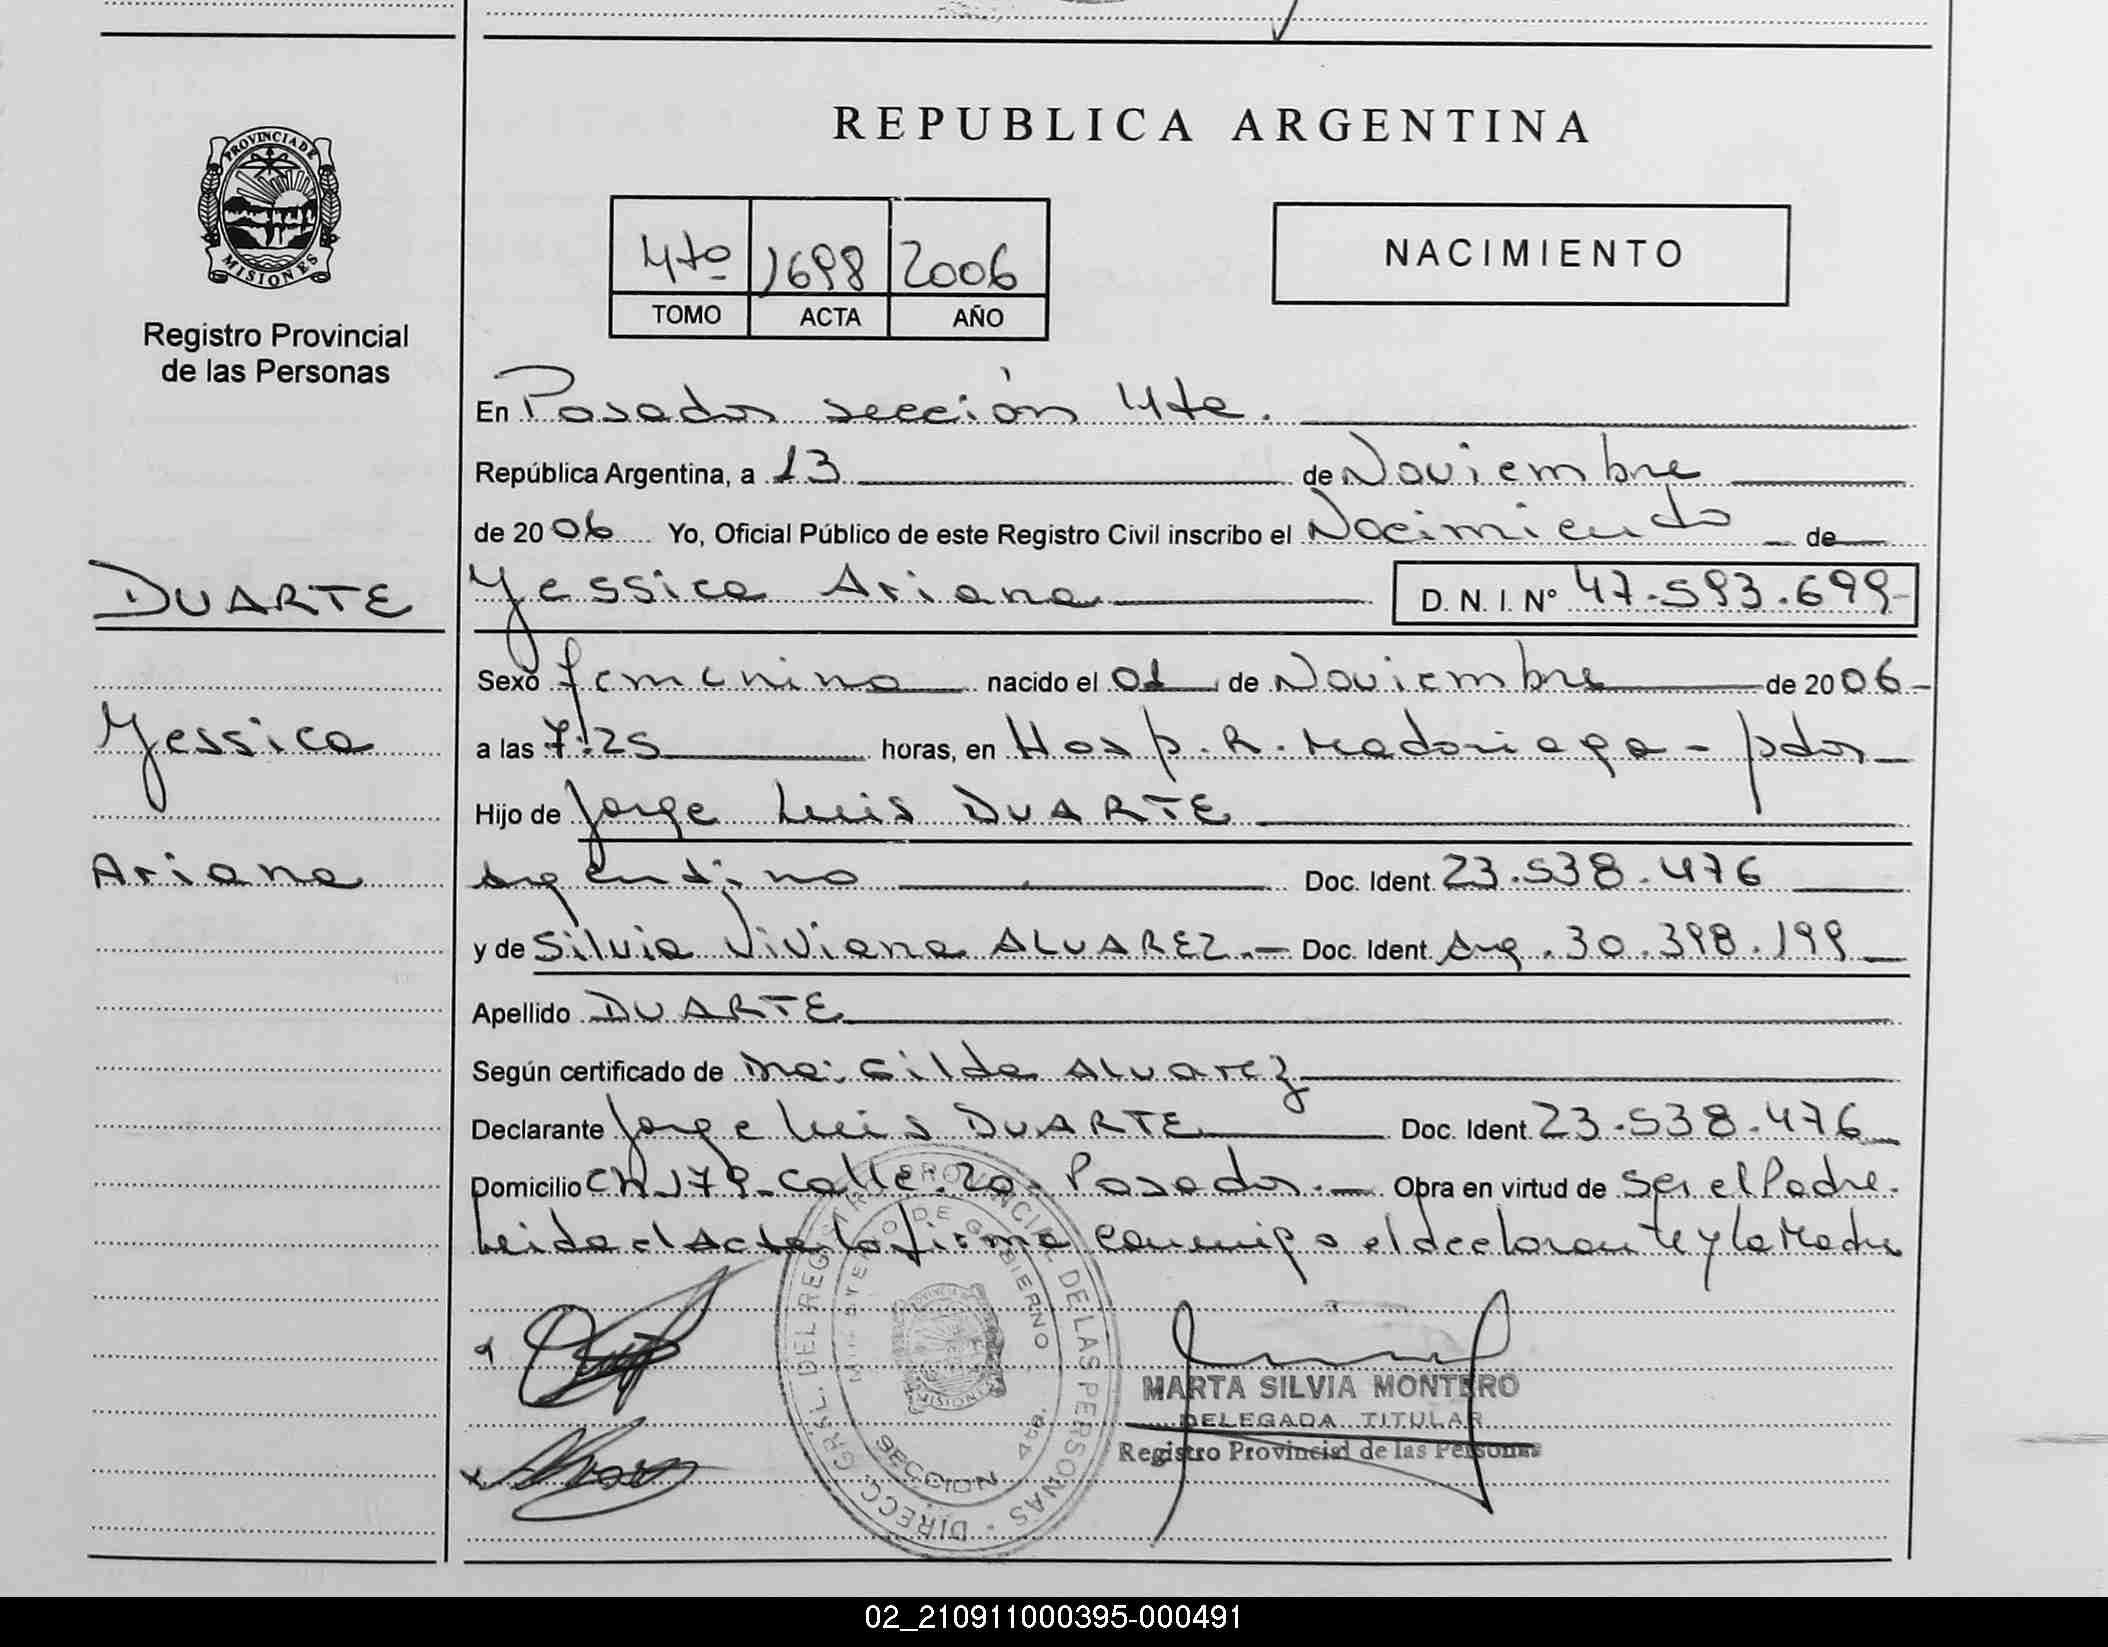 REPUBLICA ARGENTINA
PROVINCIA DE
MISIONES
Registro Provincial
de las Personas
4to 1698 2006
TOMO ACTA AÑO
NACIMIENTO
En Posadas sección 4ta.
República Argentina, a 13 de Noviembre
de 2006 Yo, Oficial Público de este Registro Civil inscribo el Nacimiento de
DUARTE
Yessica Ariana D. N. I. Nº 47.593.699
Sexo femenino nacido el 01 de Noviembre de 2006
Yessica
a las 7:25 horas, en Hosp. R. Madariaga - pdas
Hijo de Jorge Luis DUARTE
Ariana
Argentino Doc. Ident. 23.538.476
y de Silvia Viviana ALVAREZ.- Doc. Ident. Arg. 30.398.199
Apellido DUARTE
Según certificado de Gilda Alvarez
Declarante Jorge Luis DUARTE Doc. Ident. 23.538.476
Domicilio CH 179 - calle 20. Posadas.- Obra en virtud de ser el Padre.
Leida el Acta la firma conmigo el declarante y la Madre
DIRECC. GRAL. DEL REGISTRO PROVINCIAL DE LAS PERSONAS
MINISTERIO DE GOBIERNO
SECCION 4ta.
MARTA SILVIA MONTERO
DELEGADA TITULAR
Registro Provincial de las Personas
02_210911000395-000491